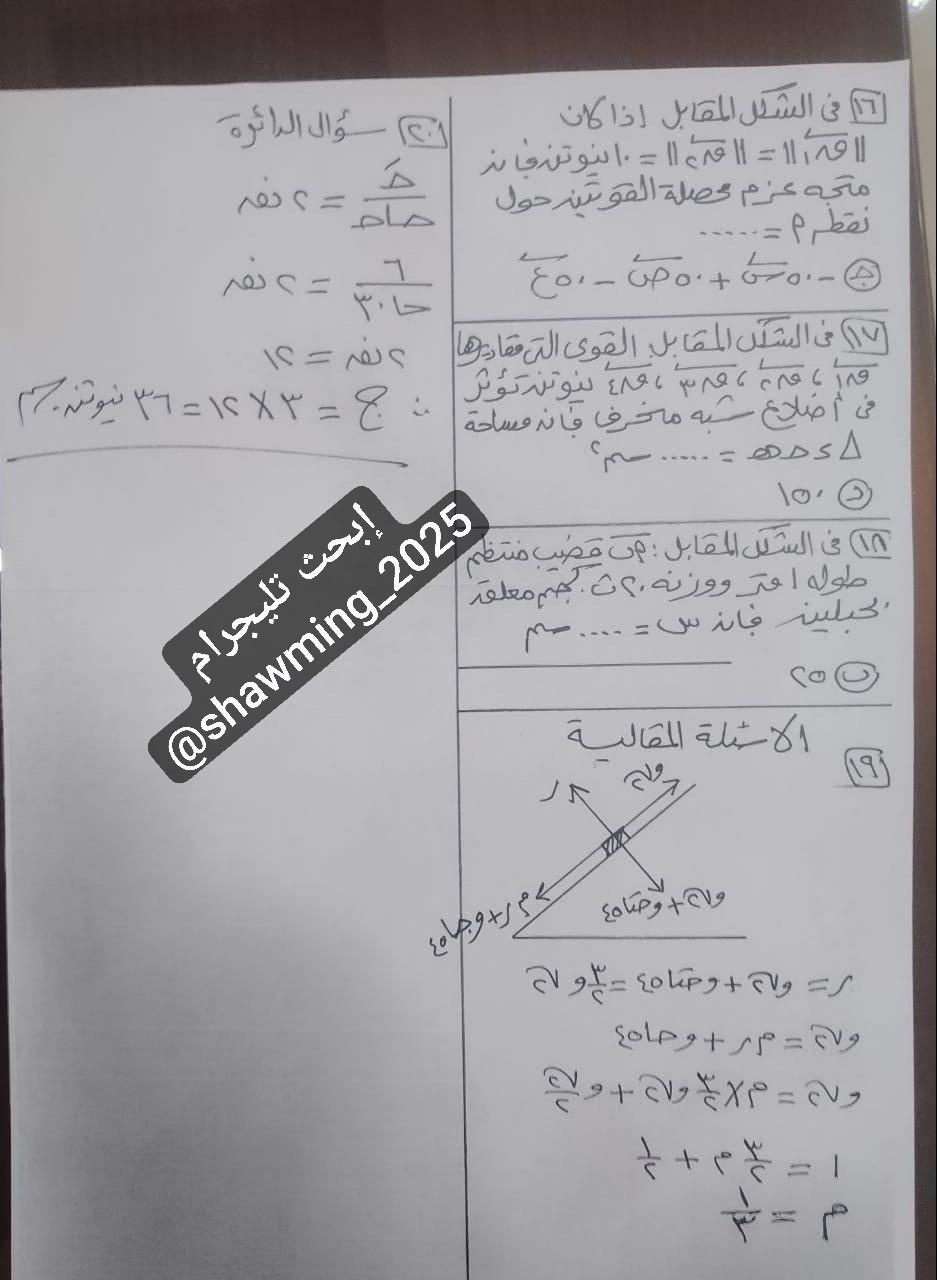 ١٦ فى الشكل المقابل إذا كان
||ق١|| = ||ق٢|| = ١٠ نيوتن فإن
متجه عزم محصلة القوتين حول
نقطة م = .....
ج -٥٠ س + ٥٠ ص - ٥٠ ع
١٧ فى الشكل المقابل: القوى التى مقاديرها
ق١، ق٢، ق٣، ق٤ نيوتن تؤثر
فى أضلاع شبه منحرف فإن مساحة
Δ د ح هـ = ..... سم٢
د ١٥٠
١٨ فى الشكل المقابل: قضيب منتظم
طوله ١ متر ووزنه ٢٠ ث.كجم معلق
بحبلين فإن س = .... سم
ب ٢٥
الاسئلة المقالية
١٩
ر
و√٢
م ر + و حا٤٥
و√٢ + و حتا٤٥
ر = و√٢ + و حتا٤٥ = ٣/٢ و √٢
و√٢ = م ر + و حا٤٥
و√٢ = م × ٣/٢ و√٢ + و √٢/٢
١ = ٣/٢ م + ١/٢
م = ١/٣
٢٠ سؤال الدائرة
حَ/حا حـ = ٢ نق
٦/حا ٣٠ = ٢ نق
٢ نق = ١٢
∴ ج = ٣ × ١٢ = ٣٦ نيوتن.سم
إبحث تليجرام
@shawming_2025